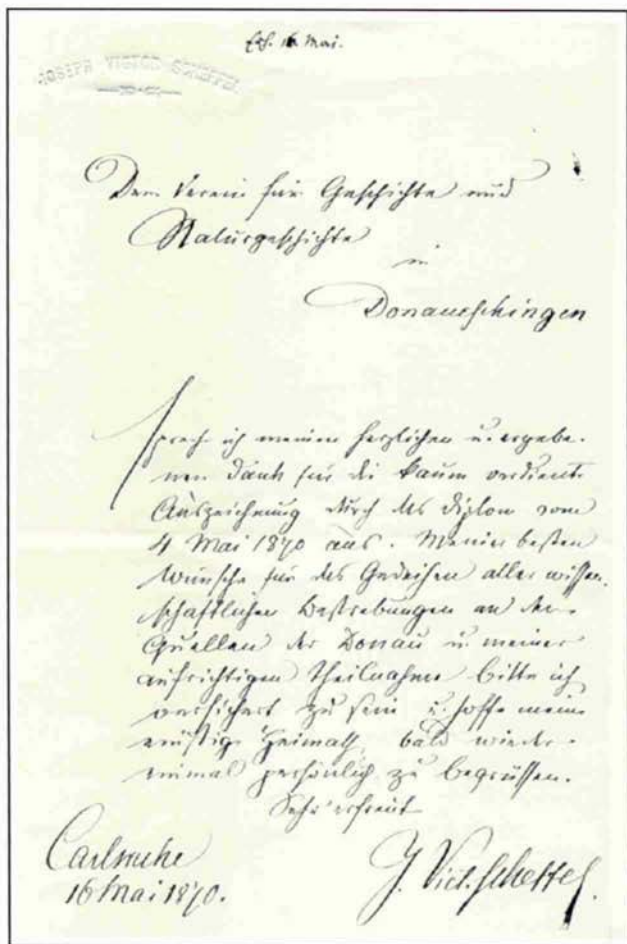 Erh. 16. Mai.
JOSEPH VICTOR SCHEFFEL
Dem Verein für Geschichte und
Naturgeschichte
in
Donaueschingen
sprech ich meinen herzlichen u. ergebe-
nen Dank für die kaum verdiente
Auszeichnung durch das Diplom vom
4 Mai 1870 aus. Meiner besten
Wünsche für das Gedeihen aller wissen-
schaftlichen Bestrebungen an den
Quellen der Donau u. meiner
aufrichtigen Theilnahme bitte ich
versichert zu sein u. hoffe meine
Heimath bald wieder
einmal persönlich zu begrüssen.
Sehr erfreut
Carlsruhe
16 Mai 1870.
J. Vict. Scheffel.